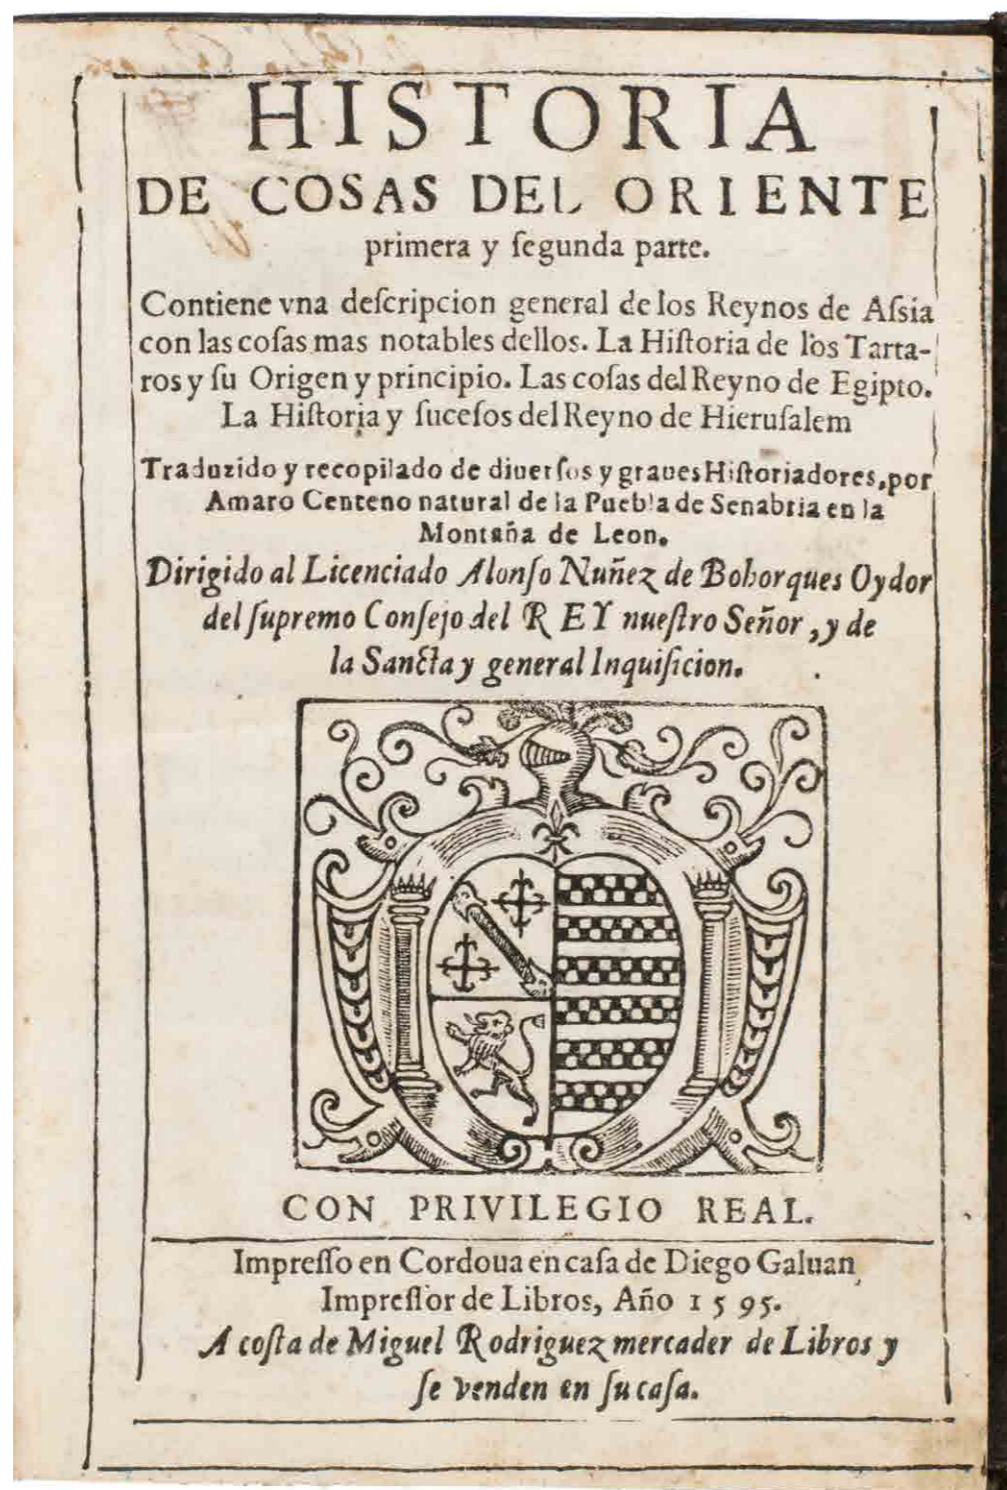 HISTORIA
DE COSAS DEL ORIENTE
primera y ſegunda parte.
Contiene vna deſcripcion general de los Reynos de Aſsia
con las coſas mas notables dellos. La Hiſtoria de los Tarta-
ros y ſu Origen y principio. Las coſas del Reyno de Egipto.
La Hiſtoria y ſuceſos del Reyno de Hieruſalem
Traduzido y recopilado de diuerſos y graues Hiſtoriadores, por
Amaro Centeno natural de la Puebla de Senabria en la
Montaña de Leon.
Dirigido al Licenciado Alonſo Nuñez de Bohorques Oydor
del ſupremo Conſejo del REY nueſtro Señor, y de
la Sancta y general Inquiſicion.
CON PRIVILEGIO REAL.
Impreſſo en Cordoua en caſa de Diego Galuan
Impreſſor de Libros, Año 1595.
A coſta de Miguel Rodriguez mercader de Libros y
ſe venden en ſu caſa.